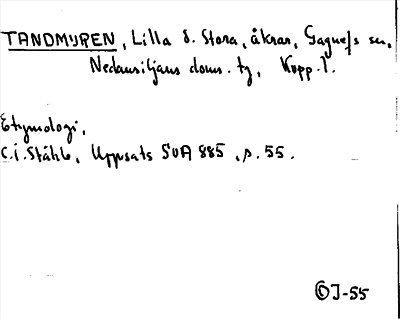 TANDMYREN, Lilla o. Stora, åkrar, Gagnefs sn,
Nedansiljans doms. tg, Kopp. l.
Etymologi.
C.I. Ståhle, Uppsats SOA 885, s. 55.
OJ-55